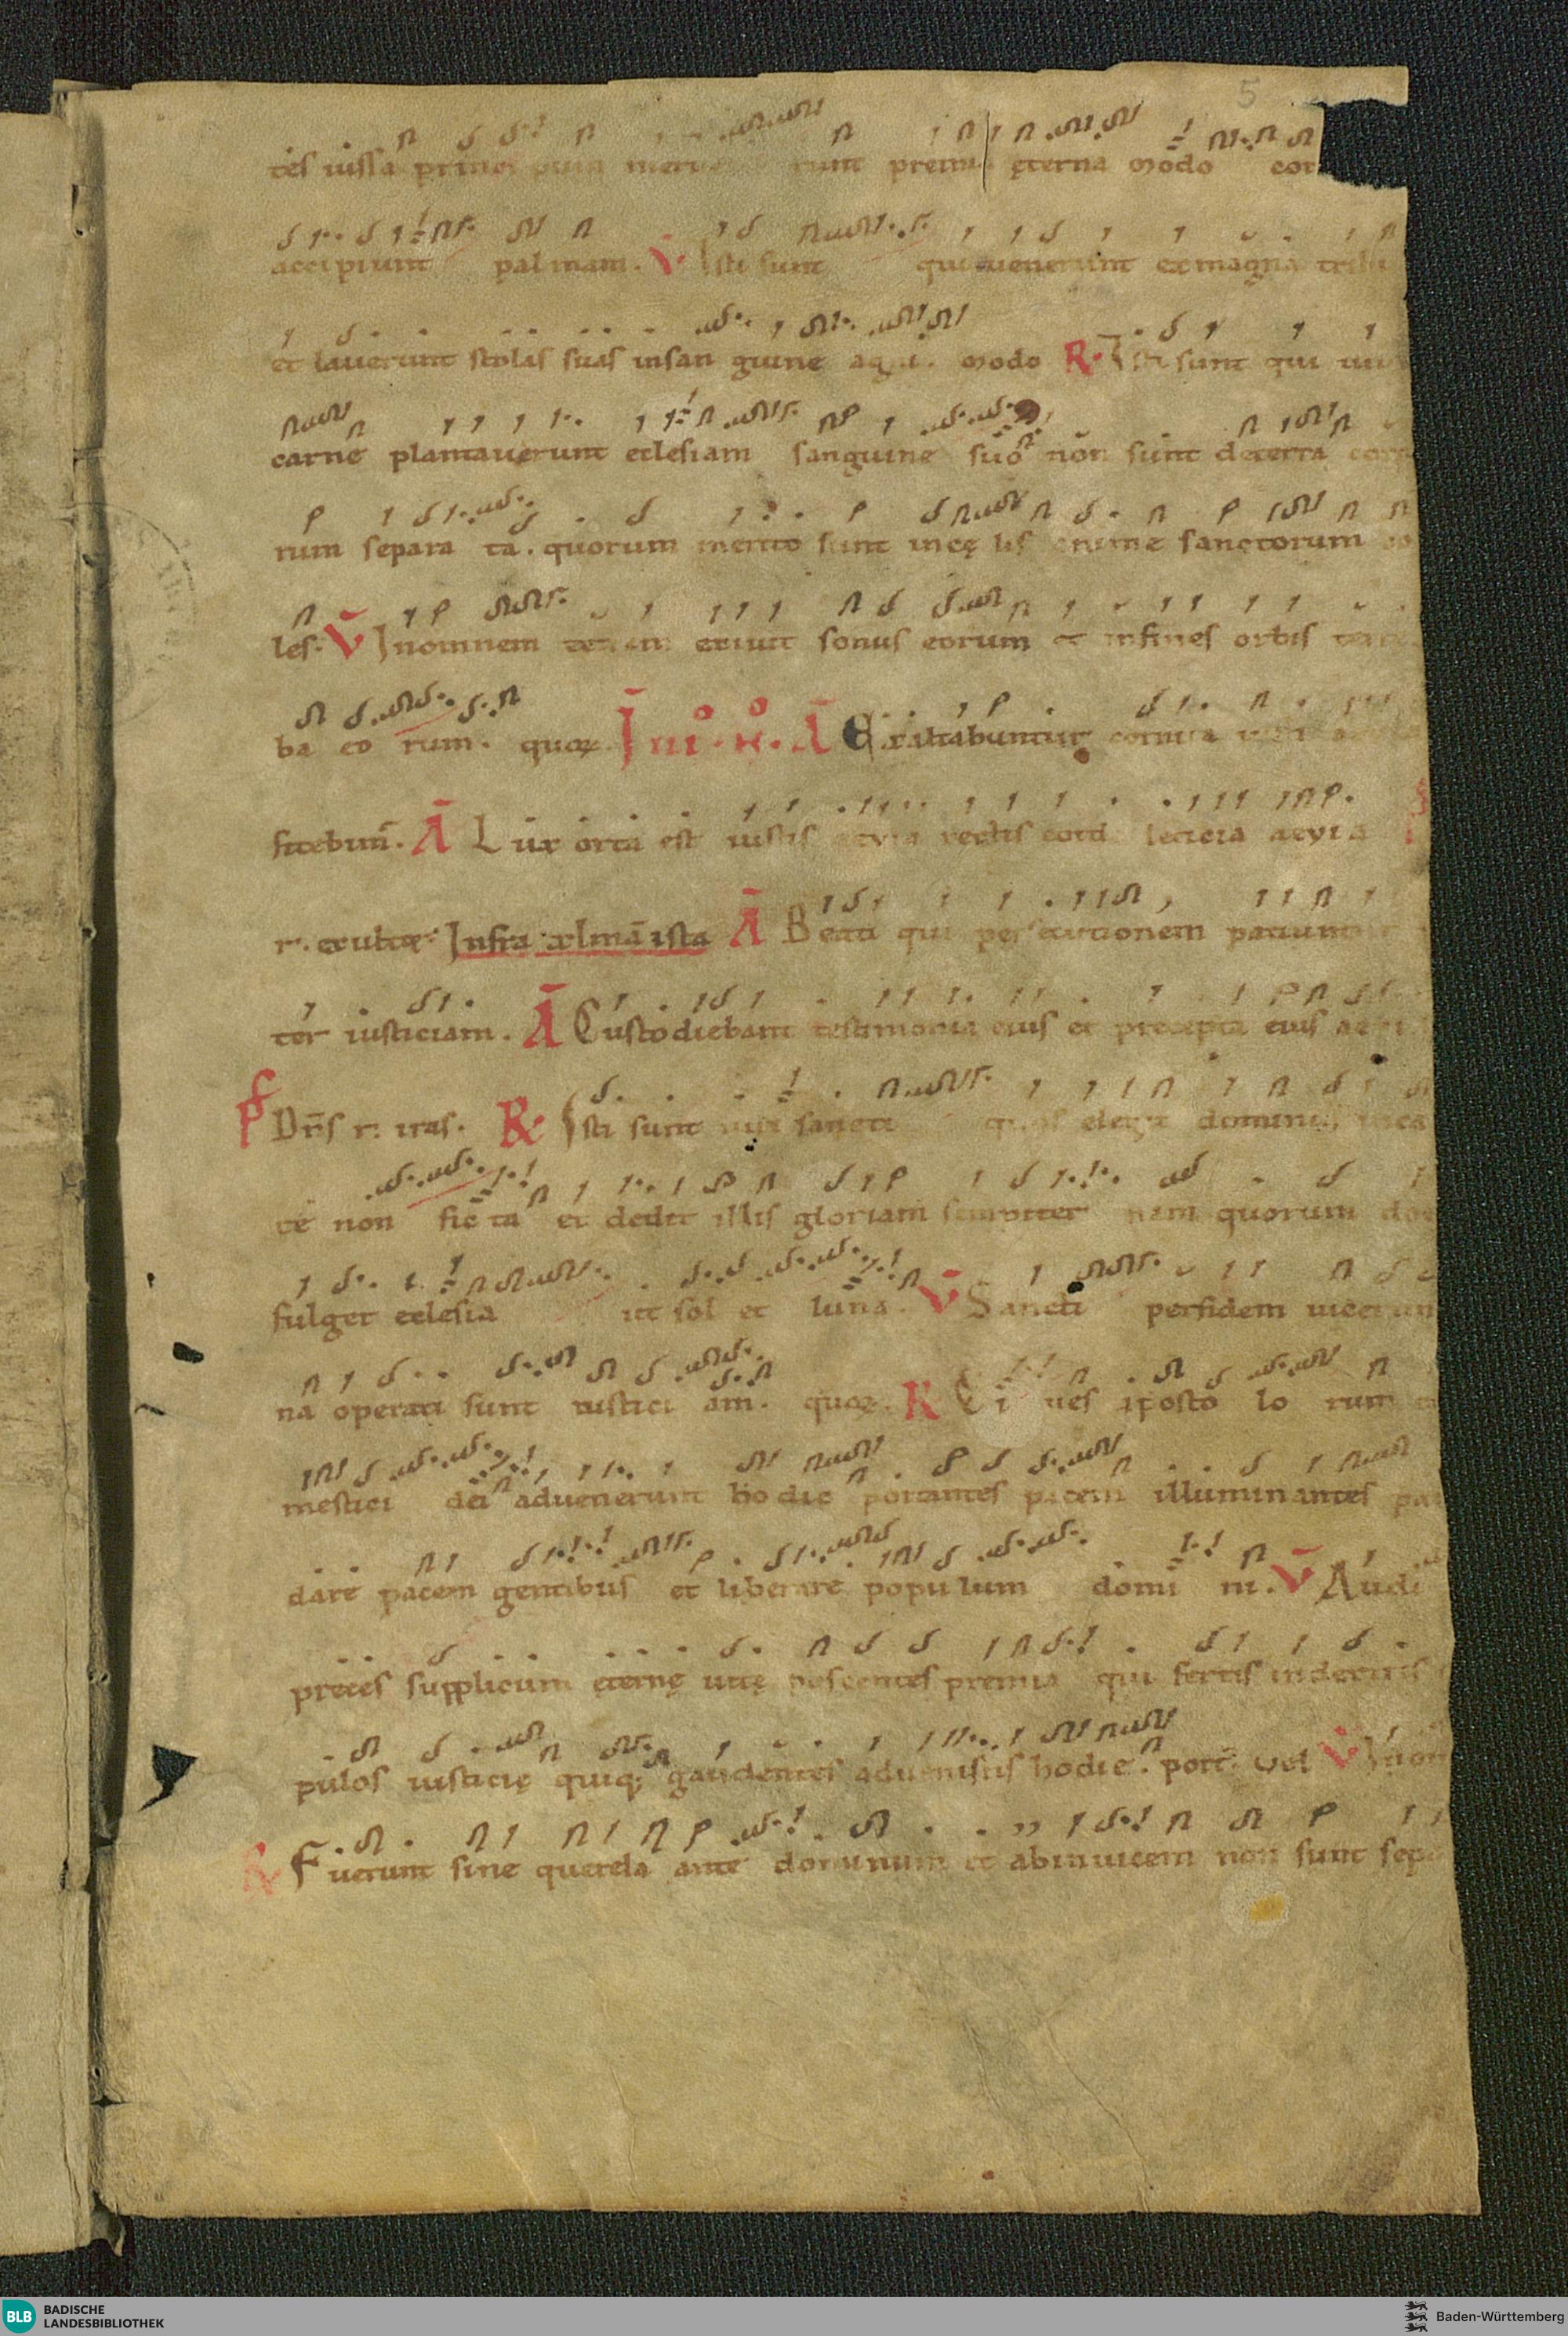 5
tes iussa princi pum meruerunt premia ęterna Modo cor
accipiunt palmam. V Isti sunt qui uenerunt ex magna tribu
et lauerunt stolas suas in san guine agni. Modo R. Isti sunt qui uiu
carne plantauerunt eclesiam sanguine suo non sunt de terra corp
rum separa ta. quorum merito sunt in cę lis anime sanctorum co
les. V̄ In omnem terram exiuit sonus eorum et in fines orbis terre
ba eo rum. quoꝝ. In iº. Nº. Ā Exaltabuntur cornua iusti
fitebunt̄. Ā Lux orta est iustis aeuia rectis cord leticia aeuia
r. exultꝫ. Infra xlmā ista Ā Beati qui persecutionem patiuntur
ter iusticiam. Ā Custodiebant testimonia eius et precepta eius aeuia
Ps Dn̄s r. iras. R. Isti sunt uiri sancti quos elegit dominus in ca
te non fic ta et dedit illis gloriam sempiter nam quorum doc
fulget eclesia ut sol et luna. V̄ Sancti per fidem uicerun
na operati sunt iustici am. quoꝝ. R Ci ues aposto lo rum
mestici dei aduenerunt ho die portantes pacem illuminantes pa
dare pacem gentibus et liberare populum domi ni. V̄ Audi
preces supplicum ęternę uitę poscentes premia qui fertis in dextris
pulos iusticię quiqꝫ gaudentes aduenistis hodie. port̄. Vel V In om
R Fuerunt sine querela ante dominum et ab inuicem non sunt sepa
BLB BADISCHE
LANDESBIBLIOTHEK
Baden-Württemberg